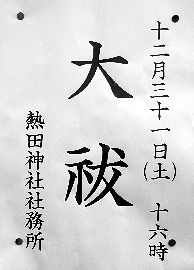 十二月三十一日(土) 十六時
大祓
熱田神社社務所